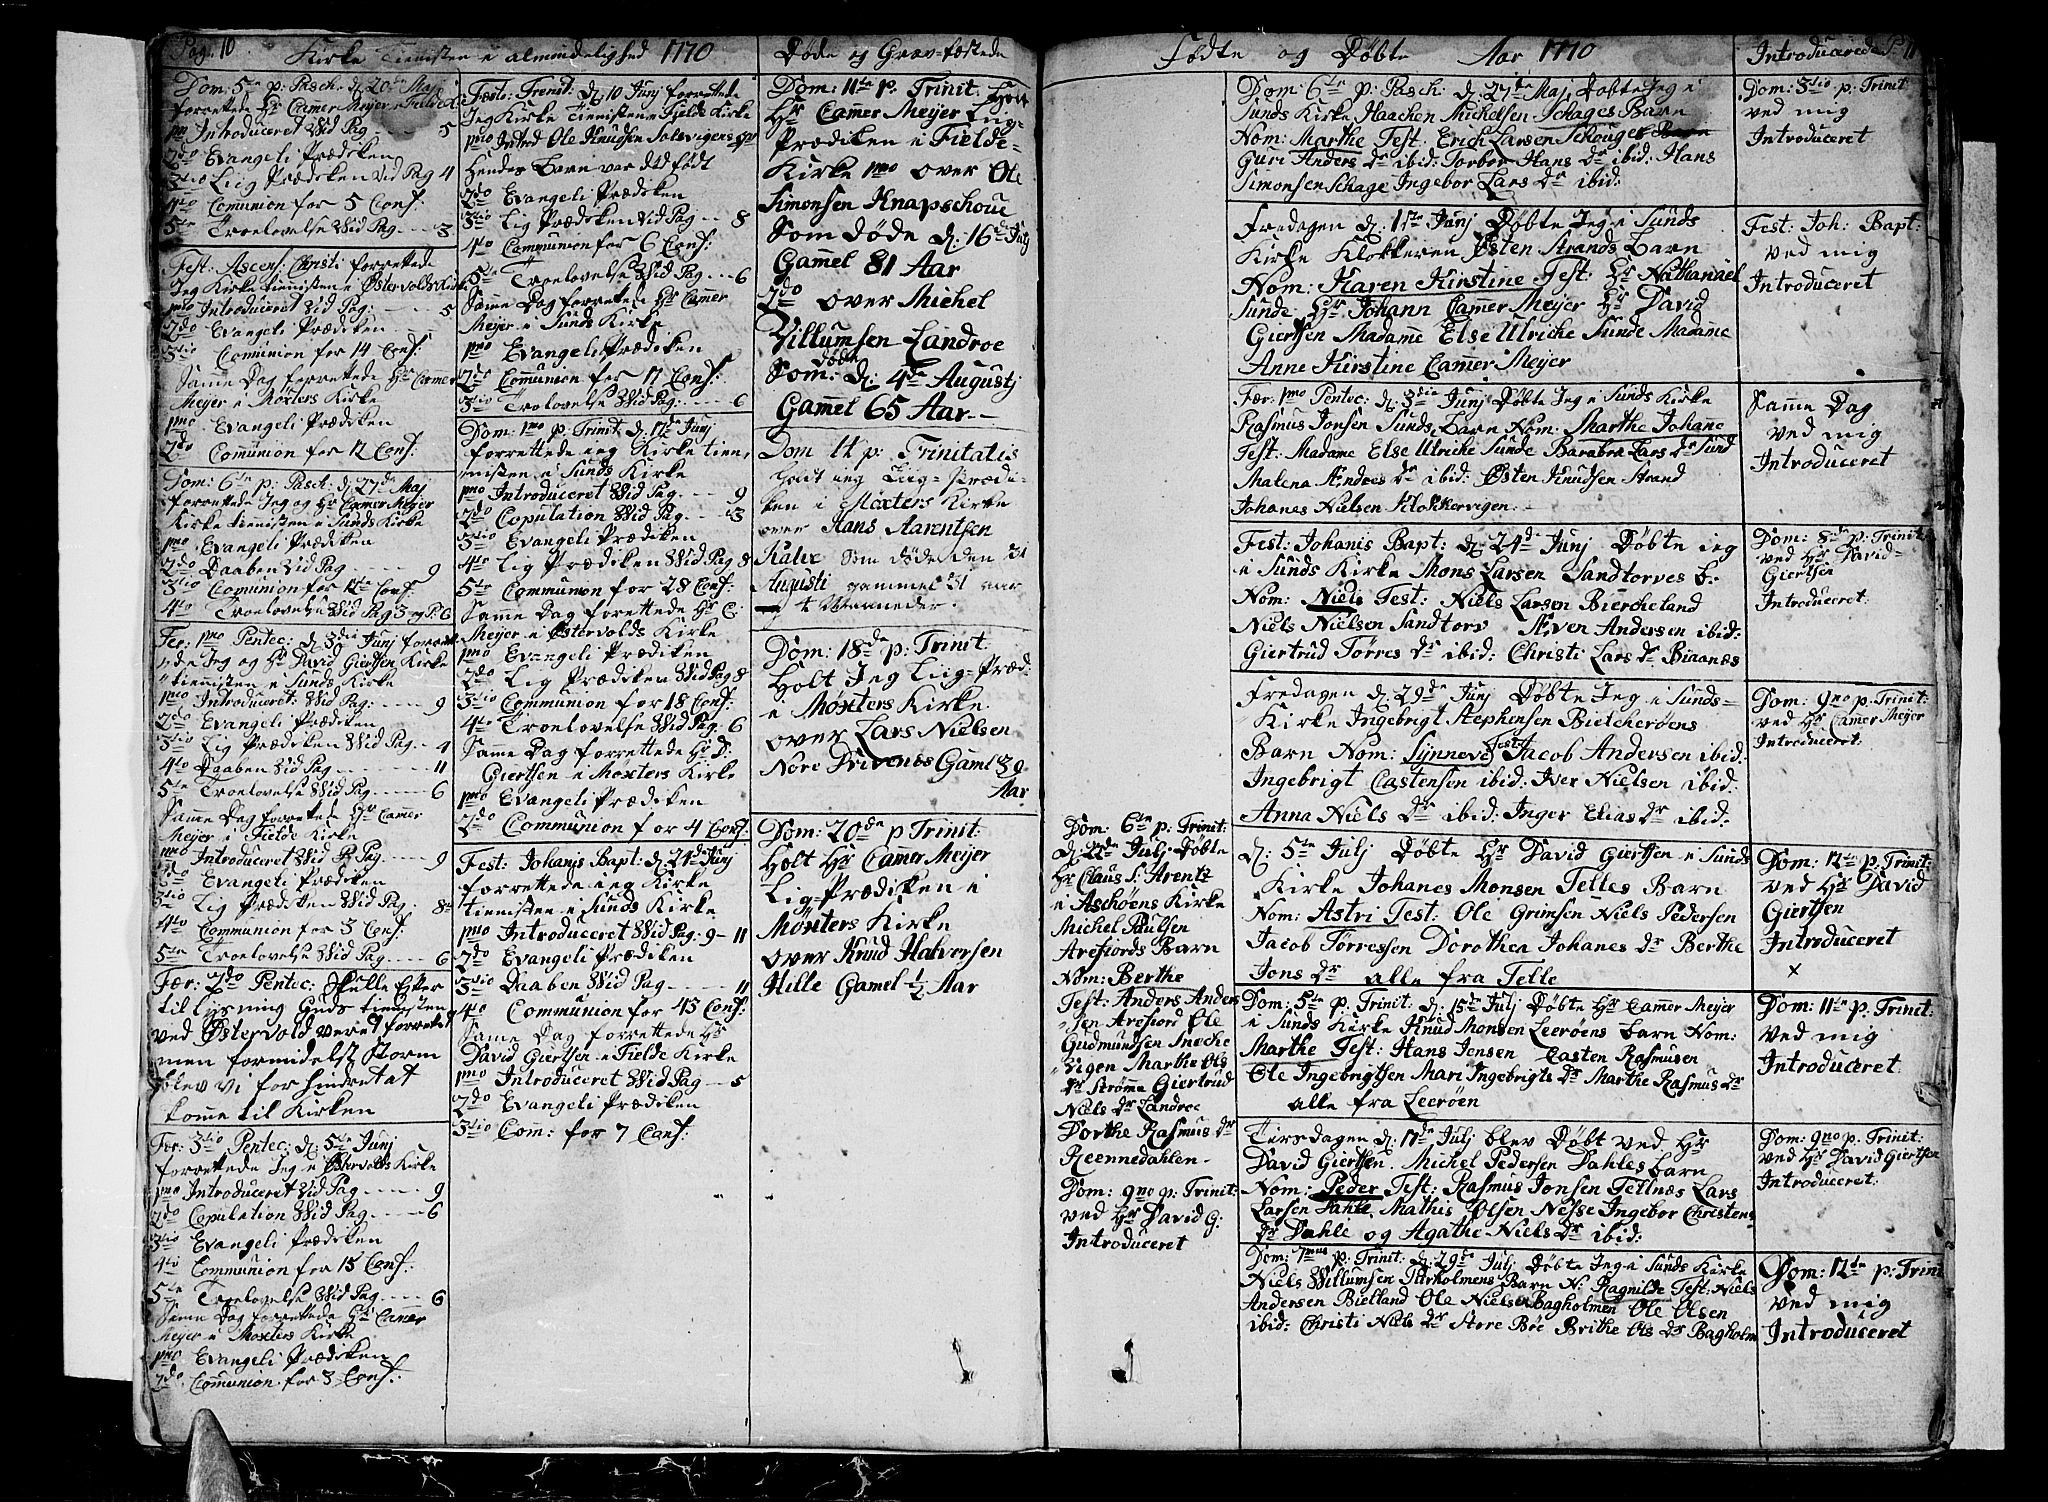 Pag: 10
Kirke Tienisten i almindelighed 1770
Dom: 5te p: Pasch: d: 20de Maj
forrettede Hr Camer Meyer i Fielde K
pmo Introduceret Wid Pag 5
2do Evangeli Prædiken
3tio Liig Prædicken Vid Pag 4
4to Comunion for 5 Conf:
5te Troelovelse Wid Pag 3
Fest: Ascens: Christi forrettede
Jeg Kirke tienisten i Østervolds Kirke
pmo Introduceret Vid Pag: 5
2do Evangeli Prædiken
3tio Comunion for 14 Conf:
Samme Dag forrettede Hr Camer
Meyer i Moxters Kirke
pmo Evangeli Prædiken
2do Comunion for 12 Conf:
Dom: 6te p: Pasch: d: 27de Maj
forrettede Jeg og Hr Camer Meyer
Kirke tienisten i Sunds Kirke
pmo Evangeli Prædiken
2do Daaben Vid Pag 9
3tio Comunion for Conf:
4to Troelovelse Wid Pag 3 og P: 6
Fer: pmo Pentec: d: 3die Junj forrette-
de Jeg og Hr David Giertsen Kirke
tienisten i Sunds Kirke
pmo Introduceret Wid Pag: 9
2do Evangeli Prædiken
3tio Lig Prædiken Wid Pag 4
4to Daaben Wid Pag 11
5te Troelovelse Wid Pag 6
Samme Dag forrettede Hr Camer
Meyer i Fielde Kirke
pmo Introduceret Wid Pag 9
2do Evangeli Prædiken
3tio Lig Prædiken Wid Pag: 8
4to Communion for 3 Conf:
5te Troelovelse Wid Pag 6
Fær: 2do Pentec: skulle Efter
til lysning Guds tienisten
ved Østervold veret forrettet
men formidelst Storm
blev vi for hindret at
komme til Kirken
Fær: 3tio Pentec: d: 5te Junj
forrettede Jeg i Østervolds Kirke
pmo Introduceret Vid Pag 9
2do Copulation Wid Pag 6
3tio Evangeli Prædiken
4to Communion for 15 Conf:
5te Troelovelse Wid Pag 6
Samme Dag forrettede Hr Camer
Meyer i Moxters Kirke
pmo Evangeli Prædiken
2do Communion for 3 Conf:
Festo: Trenit: d: 10 Junj forrettede
Jeg Kirke Tienisten i Fielde Kirke
pmo Introd Ole Knudsen Solevigens qv
hendes Barn var død født
2do Evangeli Prædiken
3tio Lig Prædiken Vid Pag 8
4to Communion for 6 Conf:
5te Troelovelse Wid Pag 6
Samme Dag forrettede Hr Camer
Meyer i Sunds Kirke
pmo Evangeli Prædiken
2do Communion for 17 Conf:
3tio Trolovelse Wid Pag: 6
Dom: pmo p: Trinit: d: 17de Junj
forrettede ieg Kirke tien-
nisten i Sunds Kirke
pmo Introduceret Wid Pag 9
2do Copulation Wid Pag 3
3tio Evangeli Prædiken
4to Lig Prædiken Wid Pag 8
5te Communion for 28 Conf:
Samme Dag forrettede Hr C:
Meyer i Østervolds Kirke
pmo Evangeli Prædiken
2do Lig Prædiken Wid Pag 8
3tio Communion for 18 Conf:
4to Troelovelse Wid Pag 6
Samme Dag forrettede Hr D:
Giertsen i Moxters Kirke
pmo Evangeli Prædiken
2do Communion for 4 Conf:
Fest: Johanis Bapt: d: 24de Junj
forrettede ieg Kirke
tienisten i Sunds Kirke
pmo Introduceret Wid Pag: 9-11
2do Evangeli Prædiken
3tio Daaben Wid Pag 11
4to Communion for 45 Conf:
Samme Dag forrettede Hr
David Giertsen i Fielde Kirke
pmo Introduceret Wid Pag 5
2do Evangeli Prædiken
3tio Com: for 7 Conf:
Døde og Grav-fæstede
Dom: 11te p: Trinit: holt
Hr Camer Meyer Liig-
Prædiken i Fielde-
Kirke pmo over Ole
Simonsen Knapschoue
Som døde d: 16de July
Gamel 81 Aar
2do over Michel
Villumsen Landroe
Som: døde d: 4de Augustj
Gamel 65 Aar
Dom 14 p: Trinitatis
holdt ieg Liig-Prædi-
ken i Moxters Kirke
over Hans Aarentsen
Kalve som døde den 31
Augusti gammel 31 aar
4 Maaneder.
Dom: 18de p: Trinit:
Holt Jeg Liig-Præd:
i Møxters Kirke
over Lars Nielsen
Nore Drivenes Gaml 39
Aar
Dom: 20de p Trinit:
Holt Hr Camer Meyer
Lig-Prædiken i
Møxters Kirke
over Knud Halversen
Hille Gamel 1/2 Aar
Fødte og Døbte Aar 1770
Dom: 6te p: Trinit:
d: 22de Julj Døbte
Hr Claus S: Arentz
i Aschøens Kirke
Michel Paulsen
Arefiords Barn
Nom: Berthe
Test: Anders Anders
sen Arefiord Ole
Gudmundsen Snecke
vigen Marthe Ols
dr Strømme Giertrud
Niels dr Landroe
Dorthe Rasmus dr
Reennedahlen
Dom: 9no p: Trinit:
ved Hr David G:
Introduceret
Dom: 6te p: Pasch: d: 27de Maj Døbte Jeg i
Sunds Kirke Haachen Michelsen Schages Barn
Nom: Marthe Test: Erich Larsen Schouge
Guri Anders dr ibid: Torbor Hans dr ibid: Hans
Simonsen Schage Ingebor Lars dr ibid:
Fredagen d: 1ste Junj Døbte Jeg i Sunds
Kirke Klokkeren Østen Strands Barn
Nom: Karen Kirstine Test: Hr Nathanael
Sunde Hr Johann Camer Meyer Hr David
Giertsen Madame Else Ulriche Sunde Madame
Anne Kirstine Camer Meyer
Fær: pmo Pentec: d: 3die Junj Døbte Jeg i Sunds Kirke
Rasmus Jonsen Sunds Barn Nom: Marthe Johane
Test: Madame Else Ulriche Sunde Barabra Lars dr Sund
Malena Andres dr ibid: Østen Knudsen Strand
Johanes Nielsen Klokkervigen
Fest: Johanis Bapt: d: 24de Junj Døbte ieg
i Sunds Kirke Mons Larsen Sandtorves b:
Nom: Niels Test: Niels Larsen Biercheland
Niels Nielsen Sandtorv Æven Andersen ibid:
Giertrud Tørres dr ibid: Christi Lars dr Biaanæs
Fredagen d: 29de Junj Døbte Jeg i Sunds-
Kirke Ingebrigt Stephensen Bielcherøens
Barn Nom: Synneve Test: Jacob Andersen ibid:
Ingebrigt Castensen ibid: Iver Nielsen ibid:
Anna Niels dr ibid: Inger Elias dr ibid:
d: 5te Julj Døbte Hr David Giertsen i Sunds
Kirke Johanes Monsen Telles Barn
Nom: Astri Test: Ole Grimsen Niels Pedersen
Jacob Tørressen Dorothea Johanes dr Berthe
Jons dr alle fra Telle
Dom: 5te p: Trinit: d: 15de Julj Døbte Hr Camer Meyer
i Sunds Kirke Knud Monsen Leerøens barn Nom:
Marthe Test: Hans Jensen Casten Rasmusen
Ole Ingebrigtsen Mari Ingebrigts dr Marthe Rasmus dr
alle fra Leerøen
Tirsdagen d: 17de Julj blev Døbt ved Hr
David Giertsen. Michel Pedersen Dahles barn
Nom: Peder Test: Rasmus Jonsen Tellnæs Lars
Larsen Dahle Mathis Olsen Nesse Ingebor Christens
dr Dahle og Agathe Niels dr ibid:
Dom: 7mus p: Trinit: d: 29de Julj Døbte Jeg i Sunds Kirke
Niels Willumsen Turholmens Barn N: Ragnilde Test: Niels
Andersen Bielland Ole Nielsen Bagholmen Ole Olsen
ibid: Christi Niels dr Store Bøe Brithe Ols dr Bagholm
Introducerede P: 11
Dom: 3tio p: Trinit
ved mig
Introduceret
Fest: Joh: Bapt:
ved mig
Introduceret
Samme Dag
ved mig
Introduceret
Dom: 8de p: Trinit:
ved Hr David
Giertsen
Introduceret:
Dom: 9no p: Trinit:
ved Hr Camer Meyer
Introduceret:
Dom: 12te p: Trinit:
ved Hr David
Giertsen
Introduceret
x
Dom: 11te p: Trinit:
ved mig
Introduceret
Dom: 9no p: Trinit:
ved Hr David Giertsen
Introduceret:
Dom: 12te p: Trini
ved mig
Introduceret